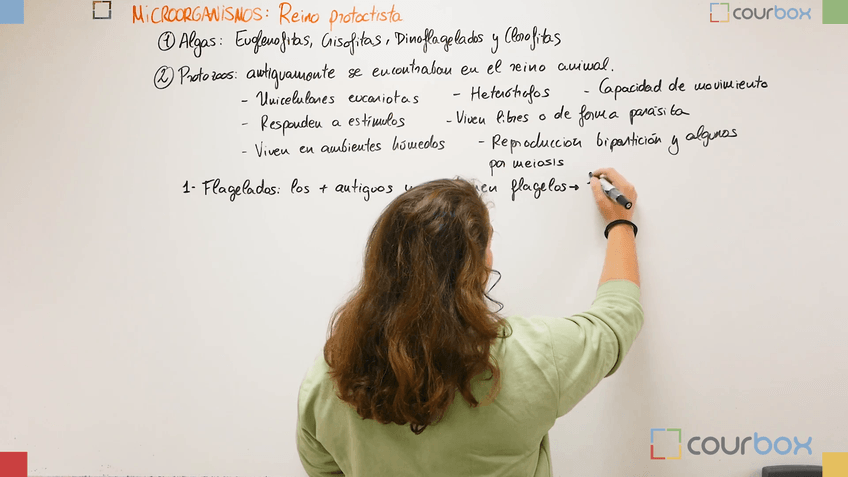 MiCROORGANiSMOS: Reino protoctista
courbox
① Algas: Euglenofitas, Crisofitas, Dinoflagelados y Clorofitas
② Protozoos: antiguamente se encontraban en el reino animal.
- Unicelulares eucariotas - Heterótrofos - Capacidad de movimiento
- Responden a estímulos - Viven libres o de forma parásita
- Viven en ambientes húmedos - Reproducción bipartición y algunos
por meiosis
1- Flagelados: los + antiguos flagelos →
courbox